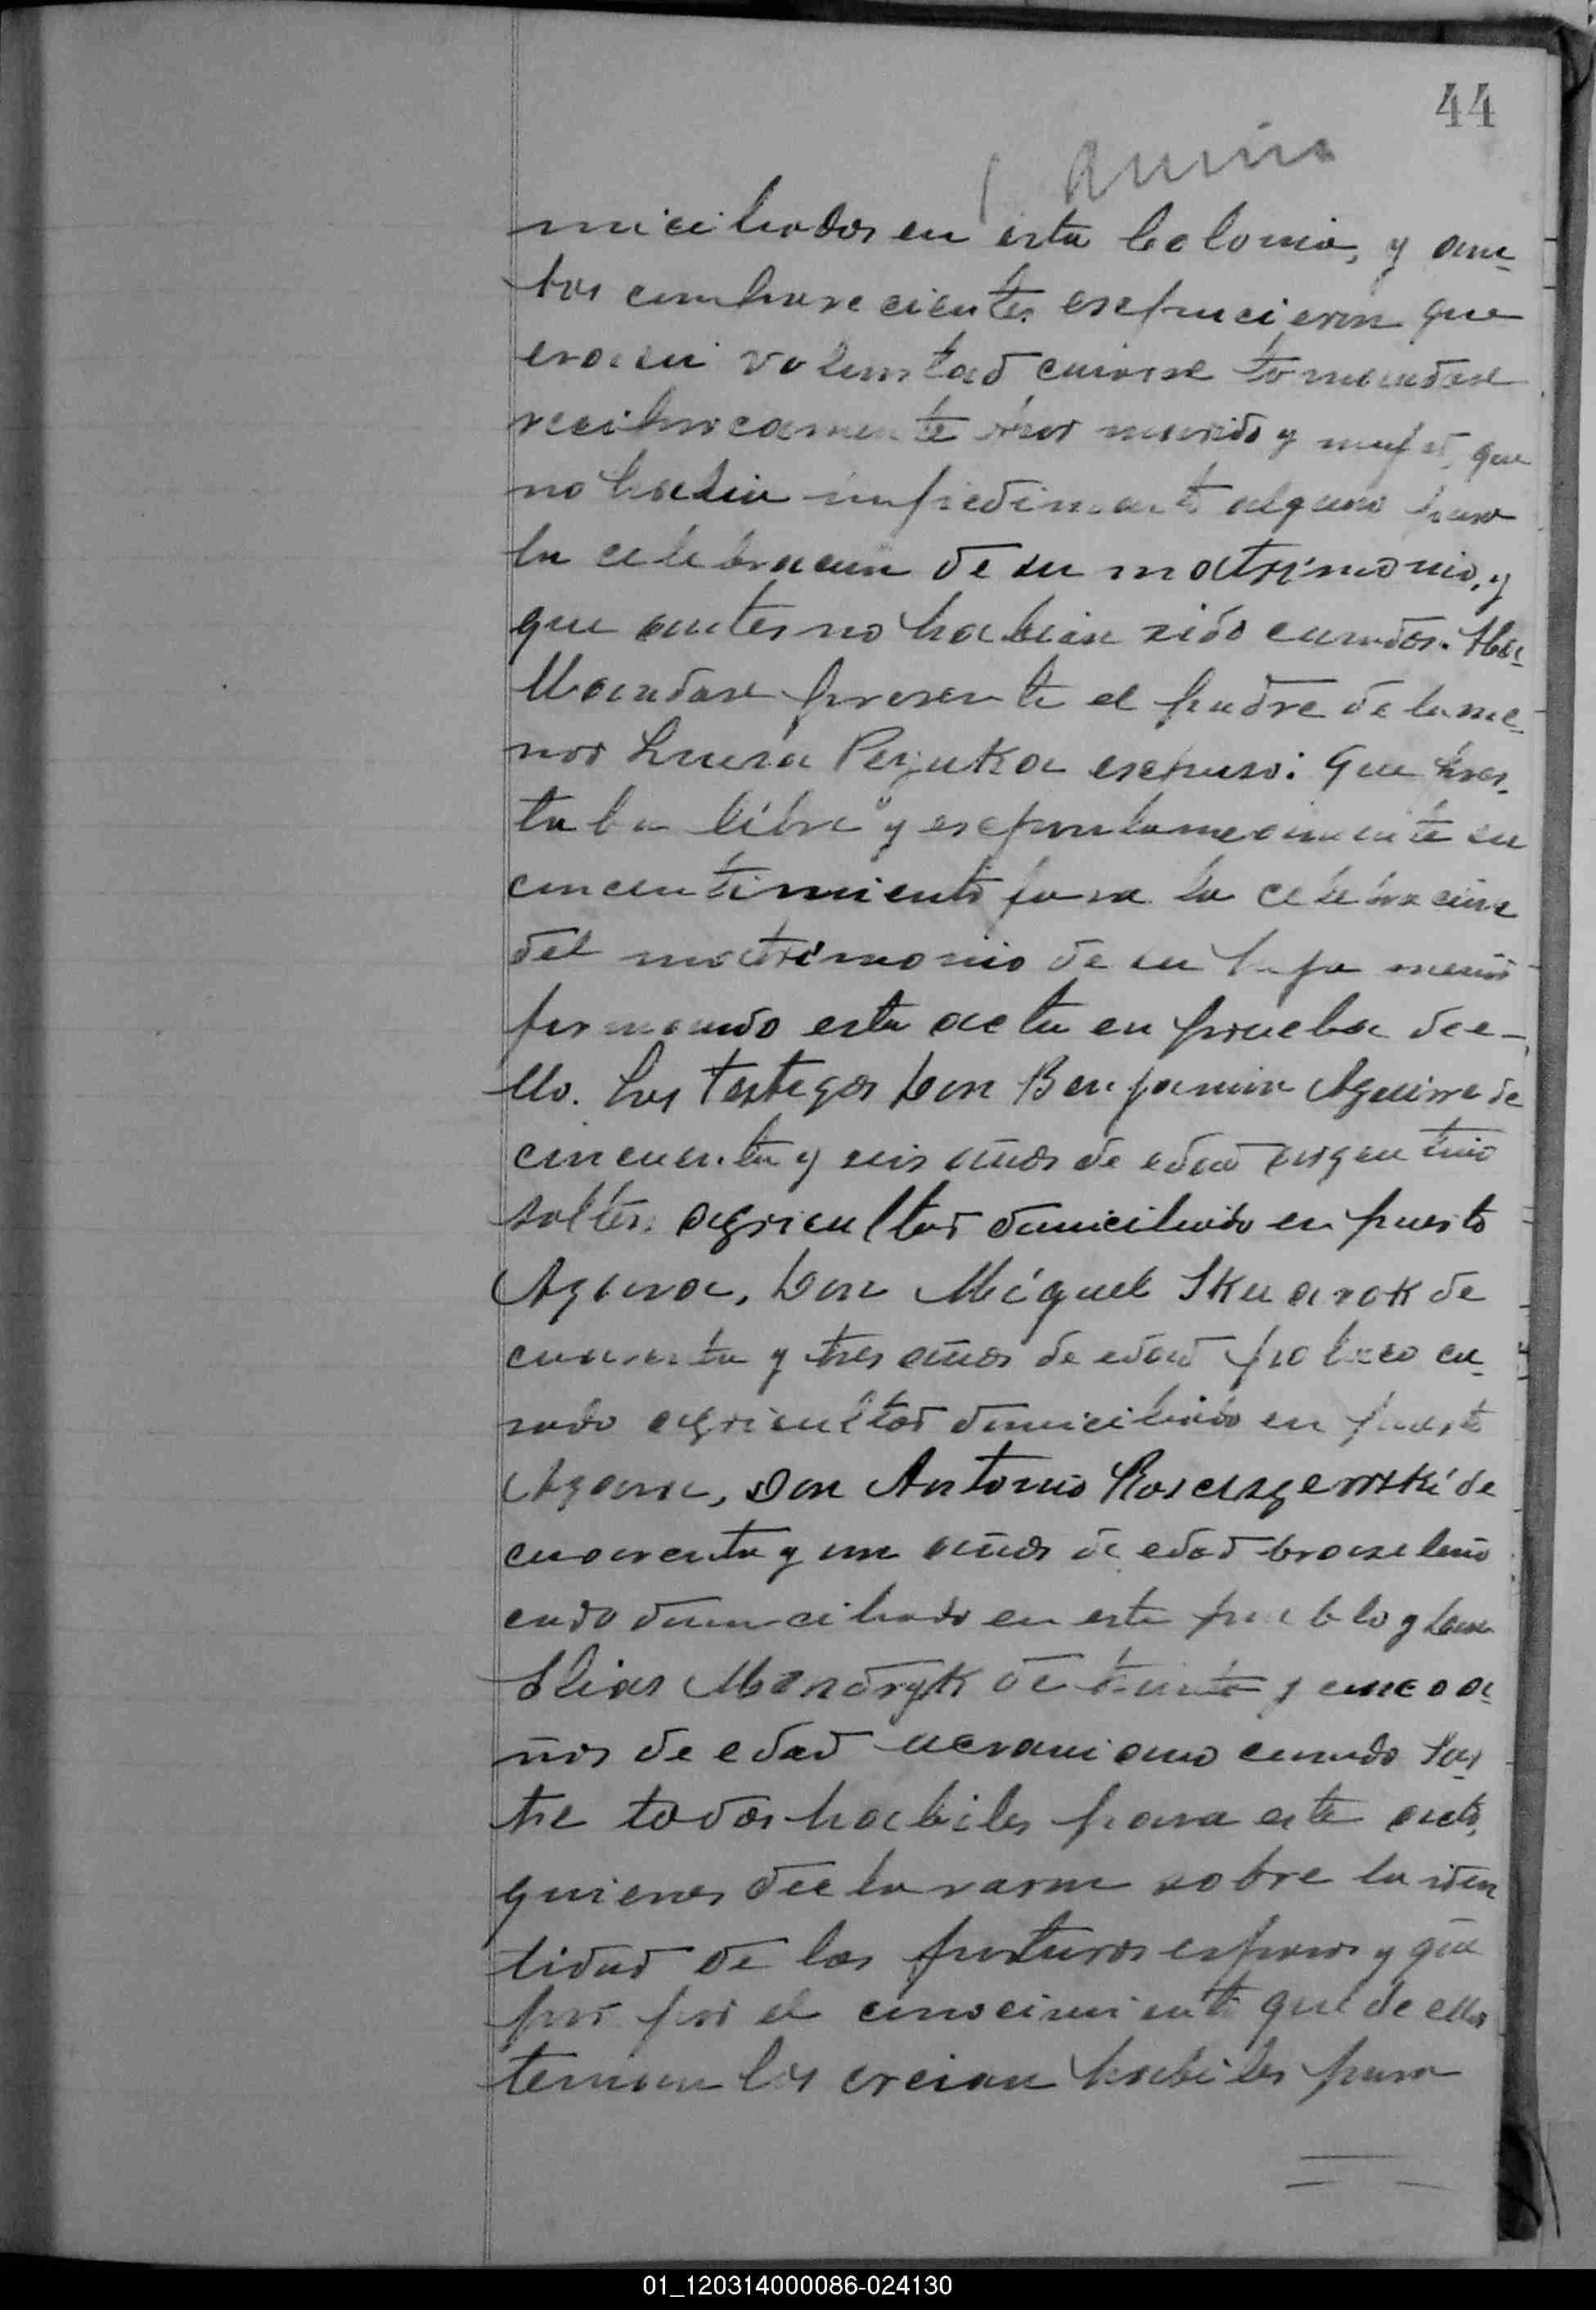 44
miciliados en esta Colonia, y am-
bos comparecientes expucieron que
era su voluntad casarse tomandose
reciprocamente por marido y mujer, que
no habia impedimento alguno para
la celebracion de su matrimonio, y
que antes no habian sido casados. Ha-
llandose presente el padre de la me-
nor Luisa Pezutka expuso: que pres-
taba libre y expontaneamente su
concentimiento para la celebracion
del matrimonio de su hija menor
firmando esta acta en prueba de e-
llo. Los testigos Don Benjamin Aguirre de
cincuenta y seis años de edad argentino
soltero agricultor domiciliado en puerto
Azara, Don Miguel Skuarok de
cuarenta y tres años de edad polaco ca-
sado agricultor domiciliado en puerto
Azara, Don Antonio de
cuarenta y un años de edad brazileño
cado domiciliado en este pueblo y Don
Elias Mendryk de treinta y cinco a-
ños de edad ucraniano casado Sas-
tre todos habiles para este acto,
quienes declararon sobre la iden
tidad de los futuros esposos y que
por por el conocimiento que de ellos
tenian los creian habiles para
01_120314000086-024130